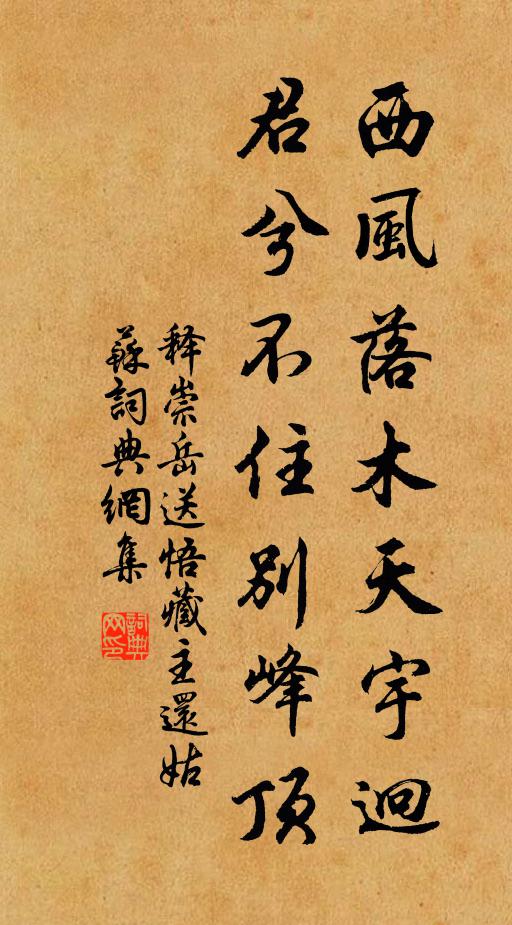 西風落木天宇迥
君兮不住別峰頂
释崇岳送悟藏主還姑
蘇詞典網集
詞典
网印